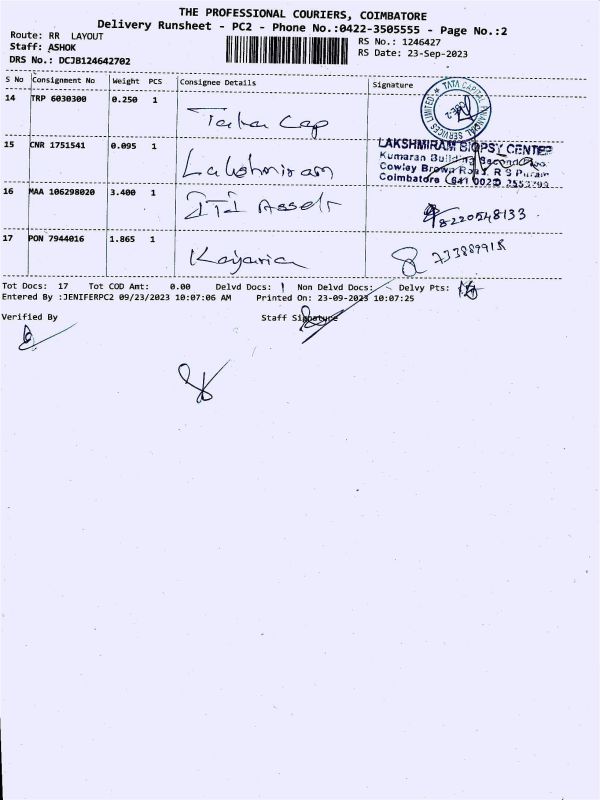 THE PROFESSIONAL COURIERS, COIMBATORE
Delivery Runsheet - PC2 - Phone No.:0422-3505555 - Page No.:2
Route: RR LAYOUT
RS No.: 1246427
Staff: ASHOK
RS Date: 23-Sep-2023
DRS No.: DCJB124642702
S No Consignment No Weight PCS Consignee Details Signature
14 TRP 6030300 0.250 1
TATA CAPITAL FINANCIAL SERVICES LIMITED
Tata Cap
15 CNR 1751541 0.095 1
LAKSHMIRAM BIOPSY CENTER
Kumaran Building Second
Lakshmiram
Cowley Brown Road, R S Puram
Coimbatore 641 002
16 MAA 106298020 3.400 1
8220548133
17 PON 7944016 1.865 1
Tot Docs: 17 Tot COD Amt: 0.00 Delvd Docs: Non Delvd Docs: Delvy Pts:
Entered By :JENIFERPC2 09/23/2023 10:07:06 AM Printed On: 23-09-2023 10:07:25
Verified By Staff Signature